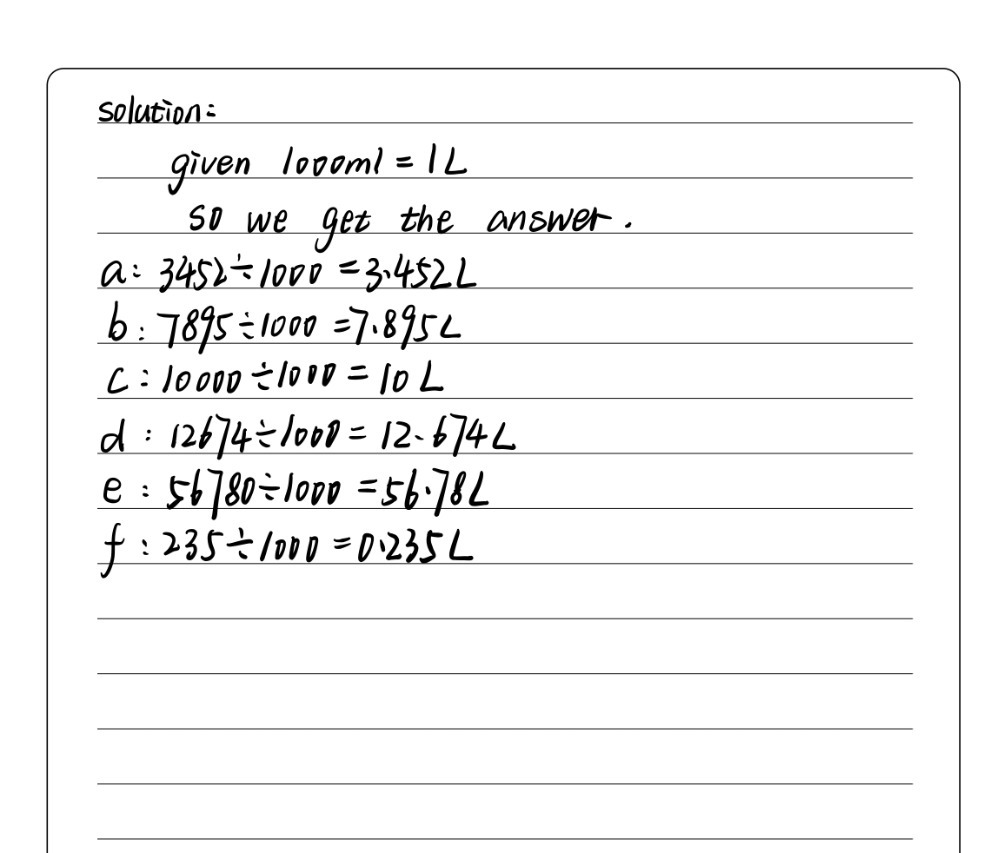 solution:
given 1000ml = 1L
so we get the answer.
a: 3452÷1000 = 3.452L
b: 7895÷1000 = 7.895L
c: 10000÷1000 = 10L
d: 12674÷1000 = 12.674L
e: 56780÷1000 = 56.78L
f: 235÷1000 = 0.235L